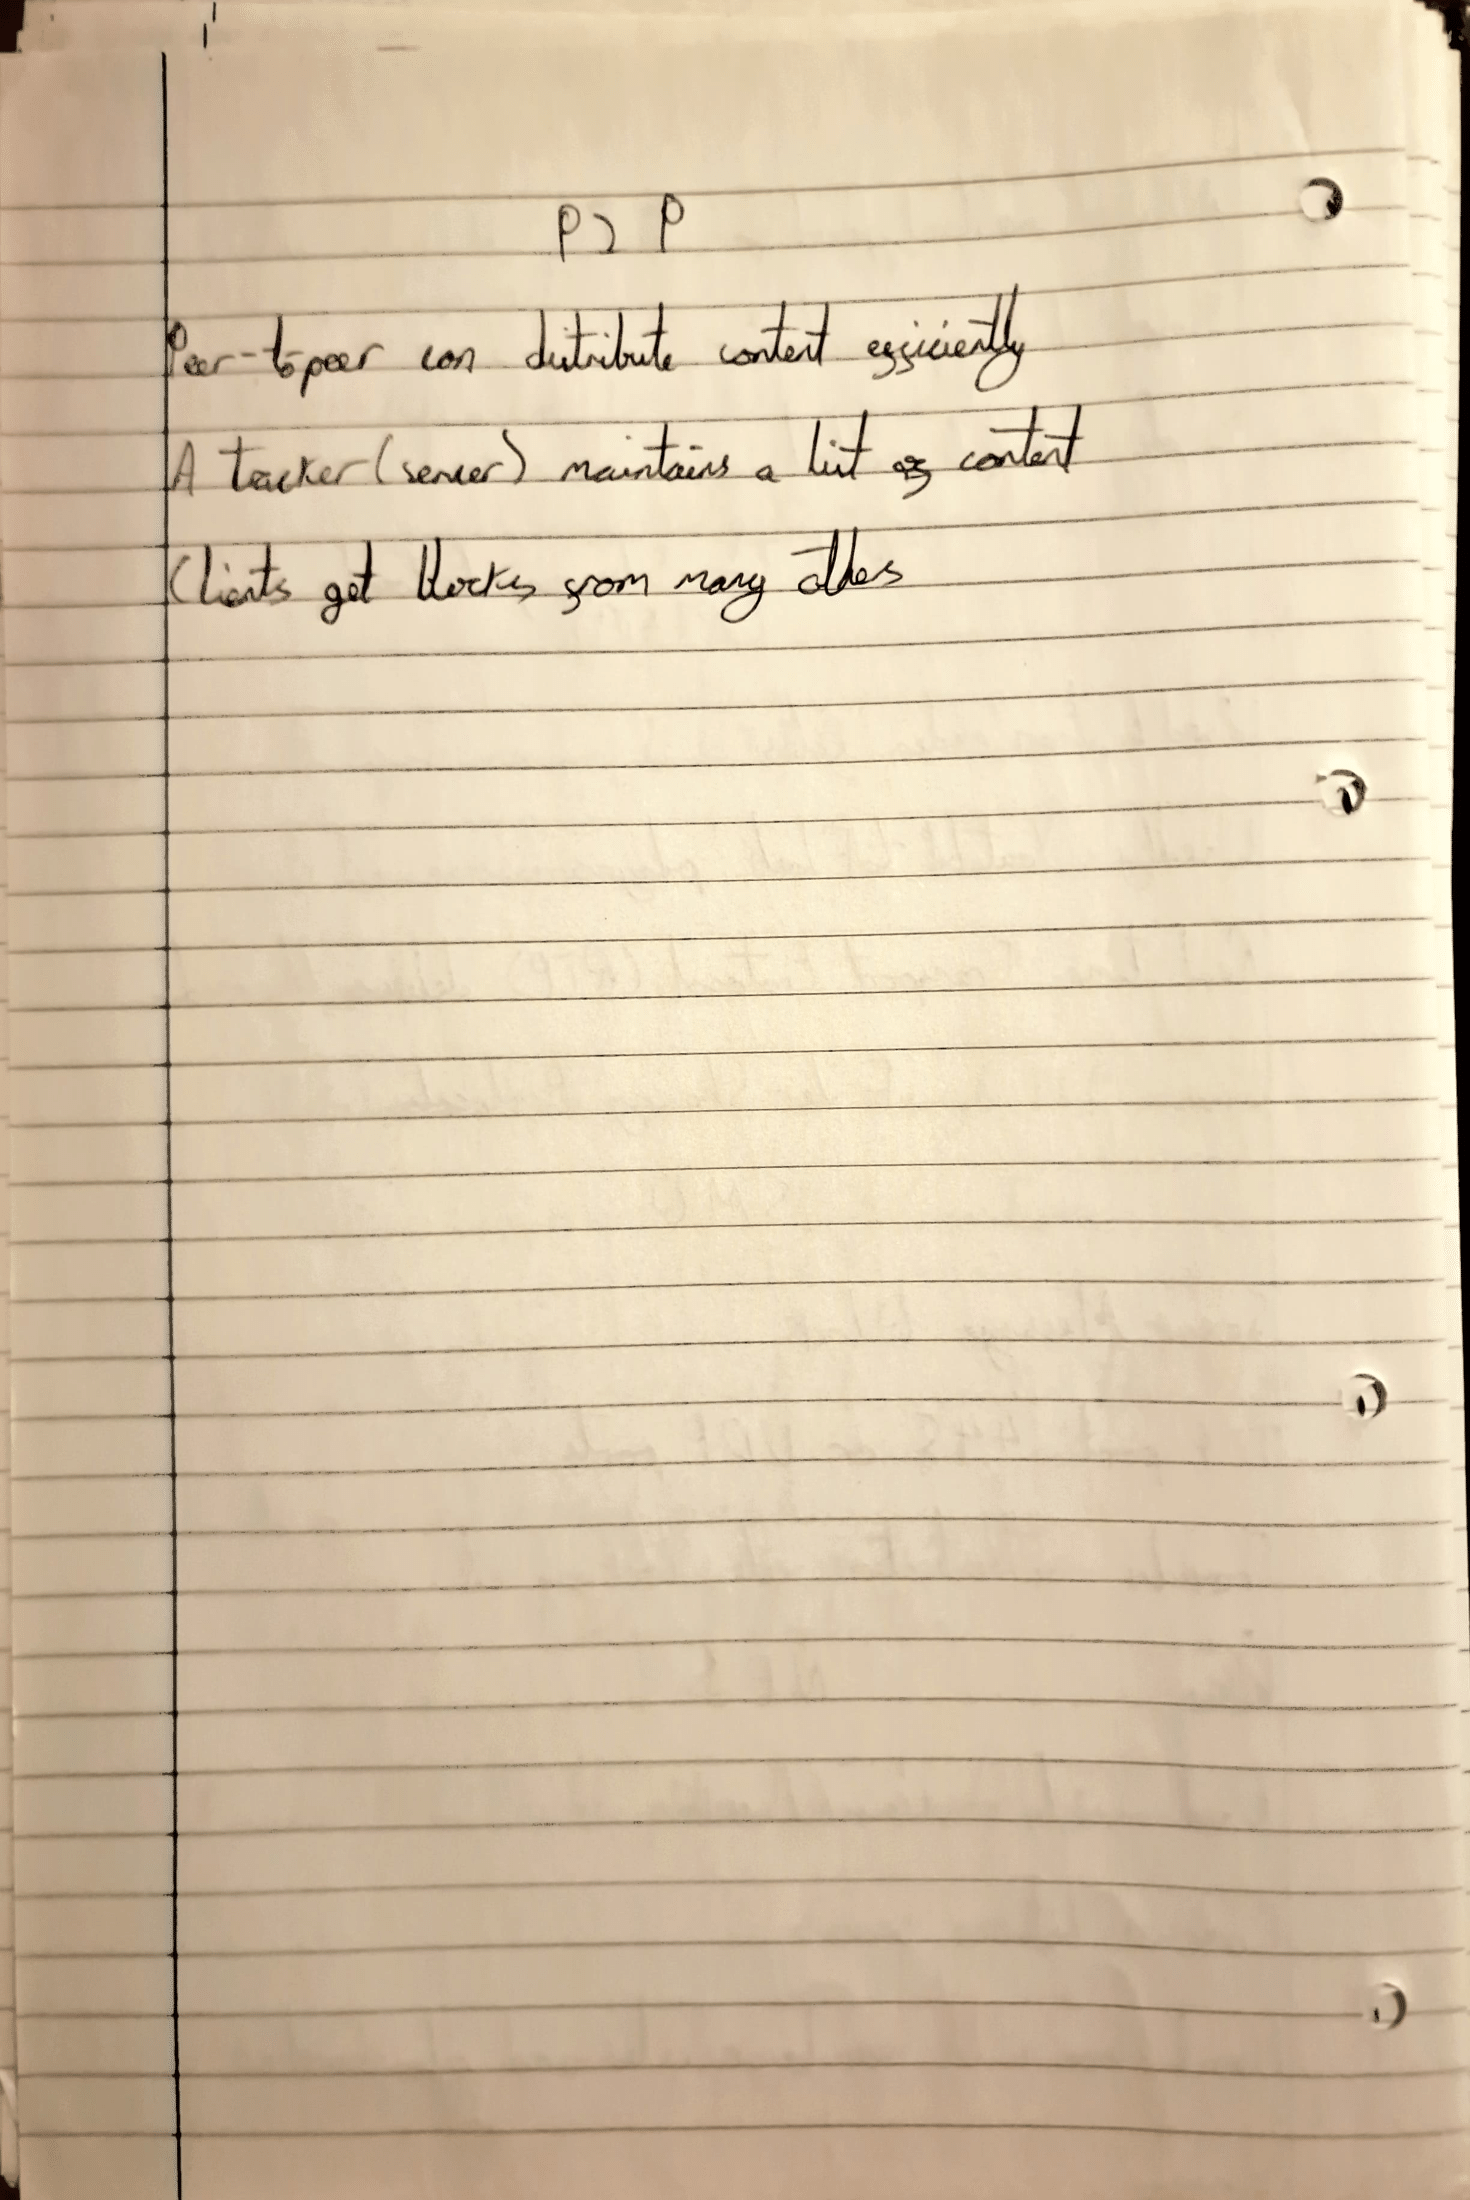 P2P
Peer-to-peer can distribute content efficiently
A tracker (server) maintains a list of content
Clients get blocks from many others